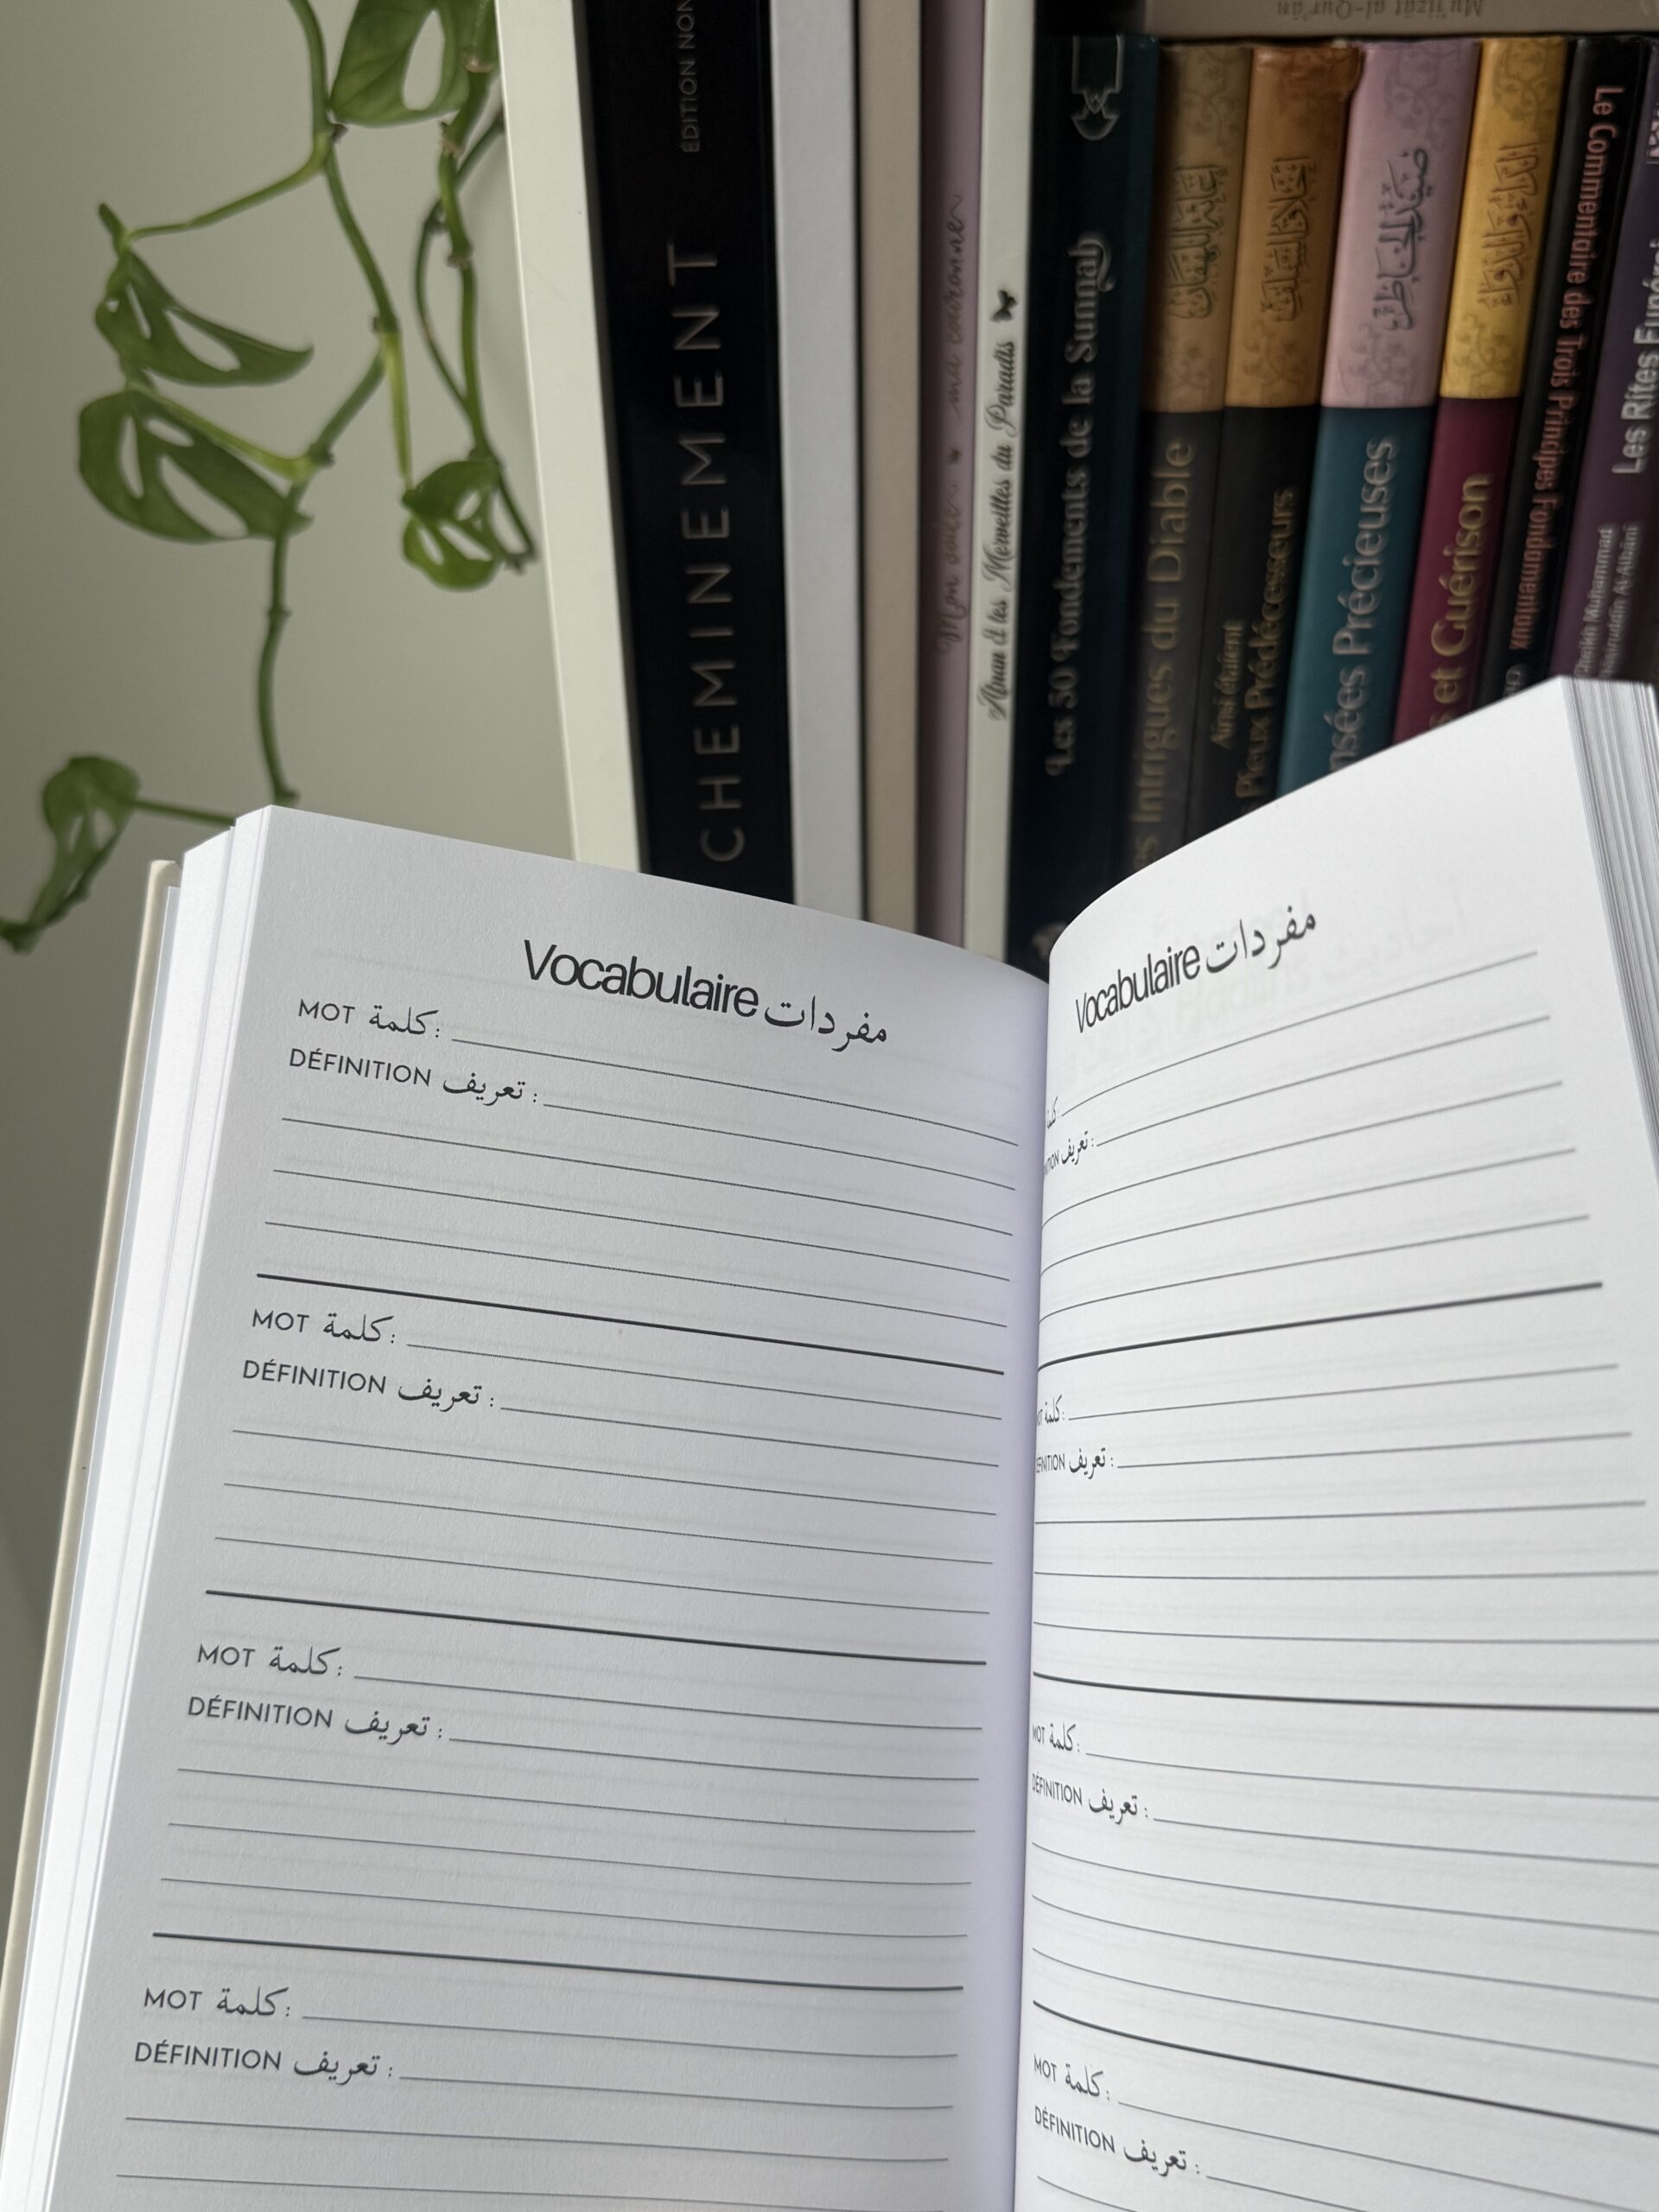 Mu'jizāt al-Qur'ān
ÉDITION NON
CHEMINEMENT
Mon voile ma couronne
Afnan et les Merveilles du Paradis
Les 50 Fondements de la Sunnah
es Intrigues du Diable
Ainsi étaient
s Pieux Prédécesseurs
nsées Précieuses
s et Guérison
Le Commentaire des Trois Principes Fondamentaux
Les Rites Funér
Cheikh Muhammad
Nasiruddin Al-Albâni
Vocabulaire مفردات
MOT كلمة:
DÉFINITION تعريف :
MOT كلمة:
DÉFINITION تعريف :
MOT كلمة:
DÉFINITION تعريف :
MOT كلمة:
DÉFINITION تعريف :
Vocabulaire مفردات
كلمة:
NITION تعريف :
OT كلمة:
ÉFINITION تعريف :
MOT كلمة:
DÉFINITION تعريف :
MOT كلمة:
DÉFINITION تعريف :